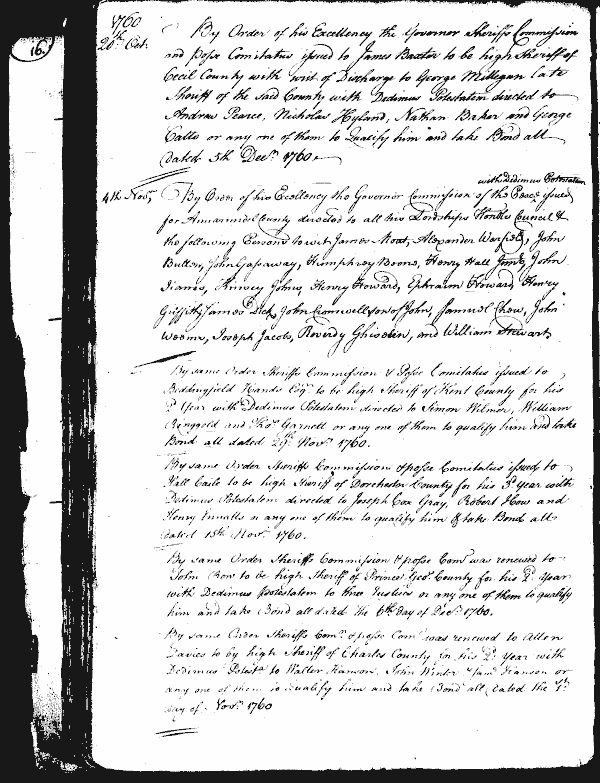 1760
16.
20th Oct.
By Order of his Excellency the Governor Sheriffs Commission
and posse Comitatus issued to James Baxter to be high Sheriff of
Cecil County with writ of Discharge to George Millegan late
Sheriff of the said County with Dedimus Potestatem directed to
Andrew Pearce, Nicholas Hyland, Nathan Baker and George
Catto or any one of them to Qualify him and take Bond all
dated 5th Decr. 1760.
with Dedimus Potestatem
4th Novr,
By Order of his Excellency the Governor Commission of the Peace issued
for Annarundel County directed to all his Lordships Honble Council &
the following Persons to wit James Mouat, Alexander Warfield, John
Bullen, John Gassaway, Humphrey Boone, Henry Hall John
Kinsey Johns, Henry Howard, Ephraim Howard Henry
Griffith, James Dick, John Cromwell son of John, Samuel Chew, John
Weems, Joseph Jacobs, Reverdy Ghiselin, and William Stewart
By same Order Sheriffs Commission & Posse Comitatus issued to
Beddingfield Hands Esqr. to be high Sheriff of Kent County for his
Year with Dedimus Potestatem directed to Simon Wilmer, William
Ringgold and Thos. Garnett or any one of them to qualify him and take
Bond all dated 29th Novr. 1760.
By same Order Sheriffs Commission & posse Comitatus issued to
Hall Caile to be high Sheriff of Dorchester County for his 3d Year with
Dedimus Potestatem directed to Joseph Cox Gray, Robert How and
Henry Ennalls or any one of them to qualify him & take Bond all
dated 15th Novr. 1760.
By same Order Sheriffs Commission & posse Comt. was renewed to
John to be high Sheriff of Prince Geo. County for his 2d. Year
with Dedimus Potestatem to three Justices or any one of them to qualify
him and take Bond all dated the 6th day of Decr. 1760.
By same Order Sheriffs Comn. & posse Comt. was renewed to Allen
Davies to by high Sheriff of Charles County for his 2d. Year with
Dedimus Potestm. to Walter Hanson, John Winter & Saml. Hanson or
any one of them to qualify him and take Bond all dated the
day of Novr. 1760